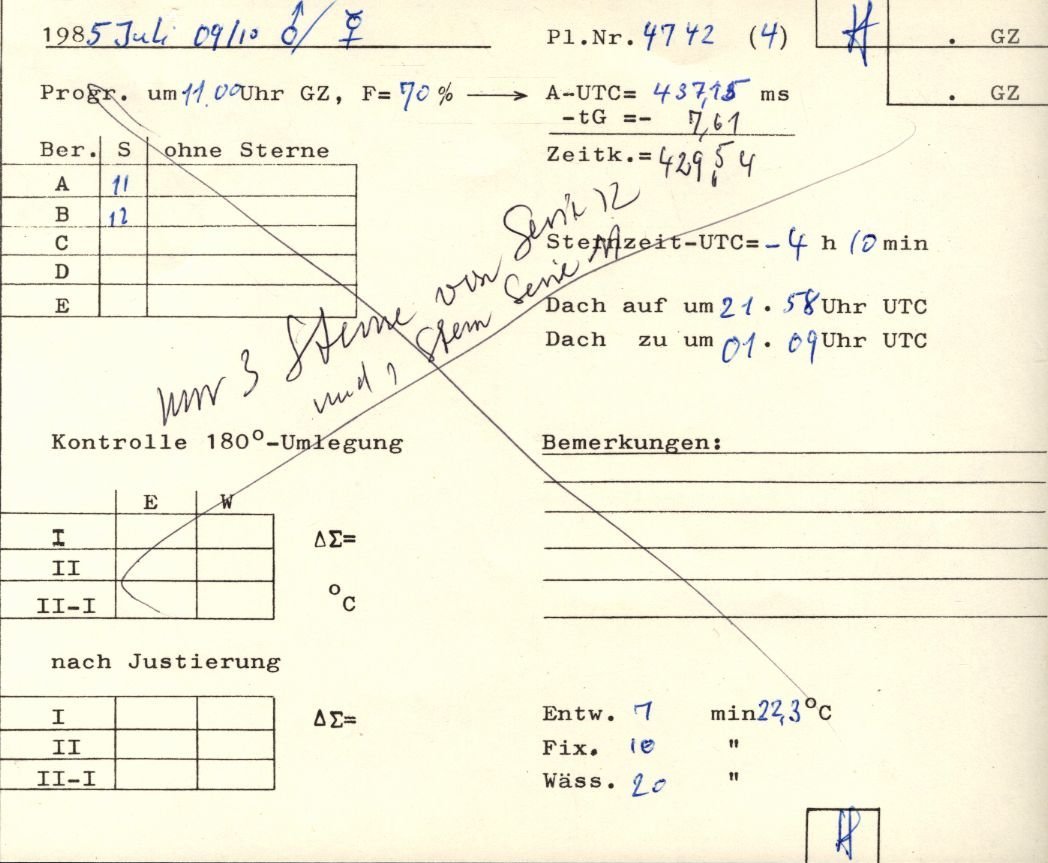 1985 Juli 09/10 ♂/☿ Pl.Nr. 4742 (4) . GZ
Progr. um 11.00 Uhr GZ, F= 70 % → A-UTC= 437,15 ms . GZ
-tG =- 7,61
Ber. S ohne Sterne Zeitk.= 429,54
A 11
B 12
C
D
E
Sternzeit-UTC= -4 h 10 min
Dach auf um 21.58 Uhr UTC
Dach zu um 01.09 Uhr UTC
nur 3 Sterne von Serie 12
und 1 Stern Serie 11
Kontrolle 180°-Umlegung
E W
I ΔΣ=
II
II-I °C
Bemerkungen:
nach Justierung
I ΔΣ=
II
II-I
Entw. 7 min 22,3 °C
Fix. 10 "
Wäss. 20 "